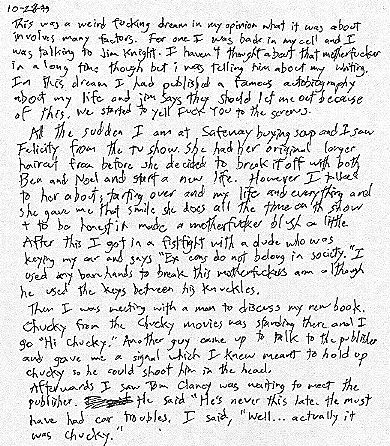 10-28-99
This was a weird fucking dream in my opinion what it was about
involves many factors. For one I was back in my cell and I
was talking to Jim Knight. I haven't thought about that motherfucker
in a long time though but i was telling him about my writing.
In this dream I had published a famous autobiography
about my life and jim says they should let me out because
of this. We started to yell Fuck You to the screws.
All the sudden I am at Safeway buying soup and I saw
Felicity from the tv show. She had her original longer
haircut from before she decided to break it off with both
Ben and Noel and start a new life. However I talked
to her about starting over and my life and everything and
she gave me that smile she does all the time on th show
+ to be honest in made a motherfucker blush a little
After this I got in a fistfight with a dude who was
keying my car and says "Ex cons do not belong in society." I
used my bare hands to break this motherfuckers arm although
he used the keys between his knuckles.
Then I was meeting with a man to discuss my new book.
Chucky from the Chucky movies was standing there and I
go "Hi Chucky." Another guy came up to talk to the publisher
and gave me a signal which I knew meant to hold up
chucky so he could shoot him in the head.
Afterwards I saw Tom Clancy was waiting to meet the
publisher. He said "He's never this late. He must
have had car troubles. I said, "Well... actually it
was Chucky."